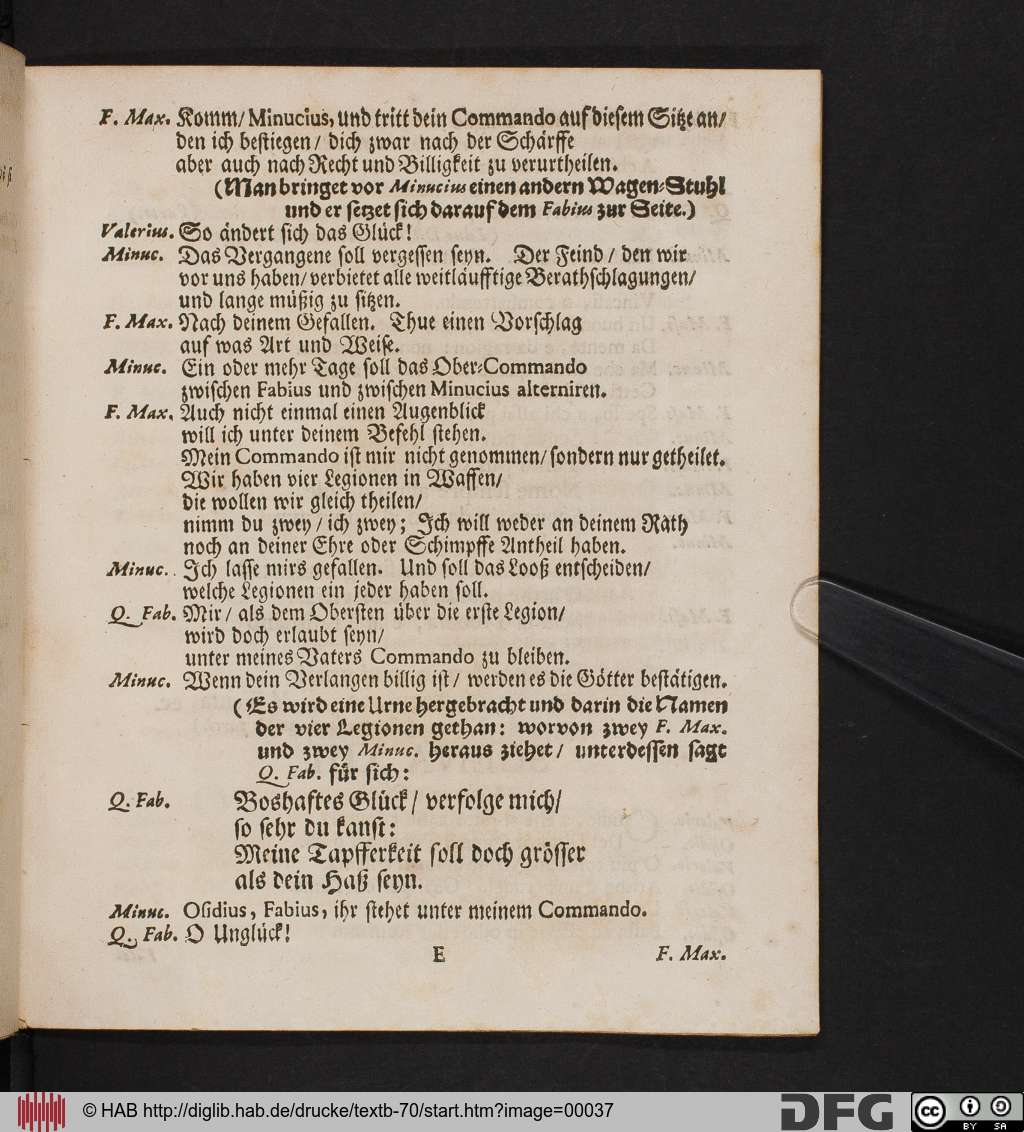 F. Max. Komm/ Minucius, und tritt dein Commando auf diesem Sitze an/
den ich bestiegen/ dich zwar nach der Schärffe
aber auch nach Recht und Billigkeit zu verurtheilen.
(Man bringet vor Minucius einen andern Wagen-Stuhl
und er setzet sich darauf dem Fabius zur Seite.)
Valerius. So ändert sich das Glück!
Minuc. Das Vergangene soll vergessen seyn. Der Feind/ den wir
vor uns haben/ verbietet alle weitläufftige Berathschlagungen/
und lange müßig zu sitzen.
F. Max. Nach deinem Gefallen. Thue einen Vorschlag
auf was Art und Weise.
Minuc. Ein oder mehr Tage soll das Ober-Commando
zwischen Fabius und zwischen Minucius alterniren.
F. Max. Auch nicht einmal einen Augenblick
will ich unter deinem Befehl stehen.
Mein Commando ist mir nicht genommen/ sondern nur getheilet.
Wir haben vier Legionen in Waffen/
die wollen wir gleich theilen/
nimm du zwey/ ich zwey; Ich will weder an deinem Rath
noch an deiner Ehre oder Schimpffe Antheil haben.
Minuc. Ich lasse mirs gefallen. Und soll das Looß entscheiden/
welche Legionen ein jeder haben soll.
Q. Fab. Mir/ als dem Obersten über die erste Legion/
wird doch erlaubt seyn/
unter meines Vaters Commando zu bleiben.
Minuc. Wenn dein Verlangen billig ist/ werden es die Götter bestätigen.
(Es wird eine Urne hergebracht und darin die Namen
der vier Legionen gethan: worvon zwey F. Max.
und zwey Minuc. heraus ziehet/ unterdessen sagt
Q. Fab. für sich:
Q. Fab. Boshaftes Glück/ verfolge mich/
so sehr du kanst:
Meine Tapfferkeit soll doch grösser
als dein Haß seyn.
Minuc. Osidius, Fabius, ihr stehet unter meinem Commando.
Q. Fab. O Unglück!
E F. Max.
© HAB http://diglib.hab.de/drucke/textb-70/start.htm?image=00037
DFG
cc BY SA